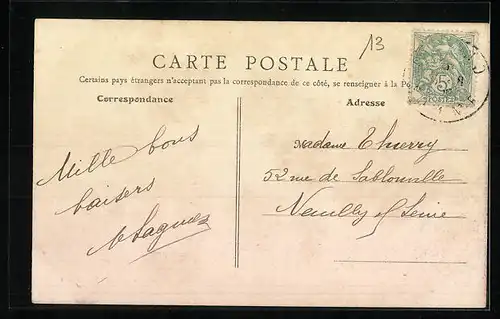 13
CARTE POSTALE
Certains pays étrangers n'acceptant pas la correspondance de ce côté, se renseigner à la Po
Correspondance
Adresse
Mille bons
baisers
Madame Thierry
52 rue de Sablonville
Neuilly s/ Seine
5
POSTES